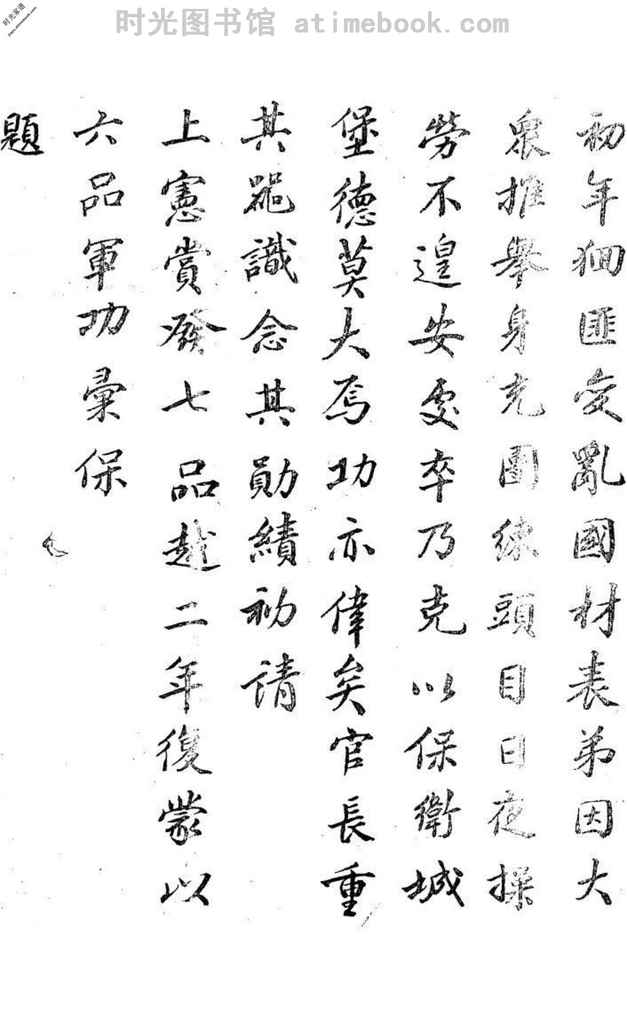 时光图书馆 atimebook.com
初年捆匪变亂國材表弟因大
衆推舉身充團練頭目日夜操
勞不遑安處卒乃克以保衛城
堡德莫大焉功亦偉矣官長重
其器識念其勛績初请
上憲賞發七品越二年復蒙以
六品軍功彙保
題